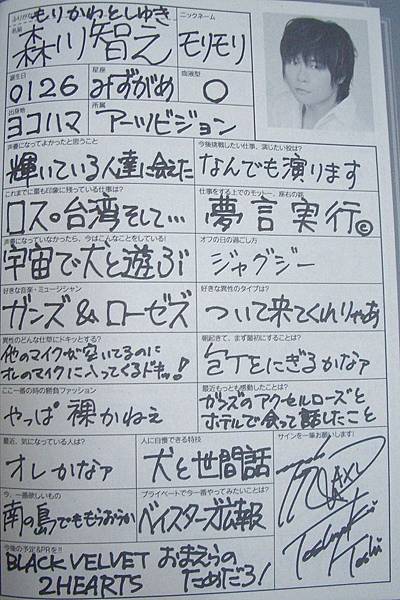 ふりがな もりかわとしゆき
名前 森川智之
ニックネーム
モリモリ
誕生日
0126
星座
みずがめ
血液型
O
出身地
ヨコハマ
所属
アーツビジョン
声優になってよかったと思うこと
輝いている人達に会えた
今後挑戦したい仕事、演じたい役は?
なんでも演ります
これまでに最も印象に残っている仕事は?
ロス。台湾そして…
仕事をする上でのモットー、座右の銘
夢言実行©
声優になっていなかったら、今はこんなことをしている!
宇宙で犬と遊ぶ
オフの日の過ごし方
ジャグジー
好きな音楽・ミュージシャン
ガンズ&ローゼズ
好きな異性のタイプは?
ついて来てくれりゃあ
異性のどんな仕草にドキッとする?
他のマイクが空いてるのに
オレのマイクに入ってくるドキッ!
朝起きて、まず最初にすることは?
包丁をにぎるかなァ
ここ一番の時の勝負ファッション
やっぱ裸かねぇ
最近もっとも感動したことは?
ガンズのアクセルローズと
ホテルで会って話したこと
最近、気になっている人は?
オレかなァ
人に自慢できる特技
犬と世間話
サインを一筆お願いします!
今、一番欲しいもの
南の島でももらおうか
プライベートで今一番やってみたいことは?
ベイスターズ広報
今後の予定&PRを!!
BLACK VELVET おまえらの
2HEARTS ためだろ!